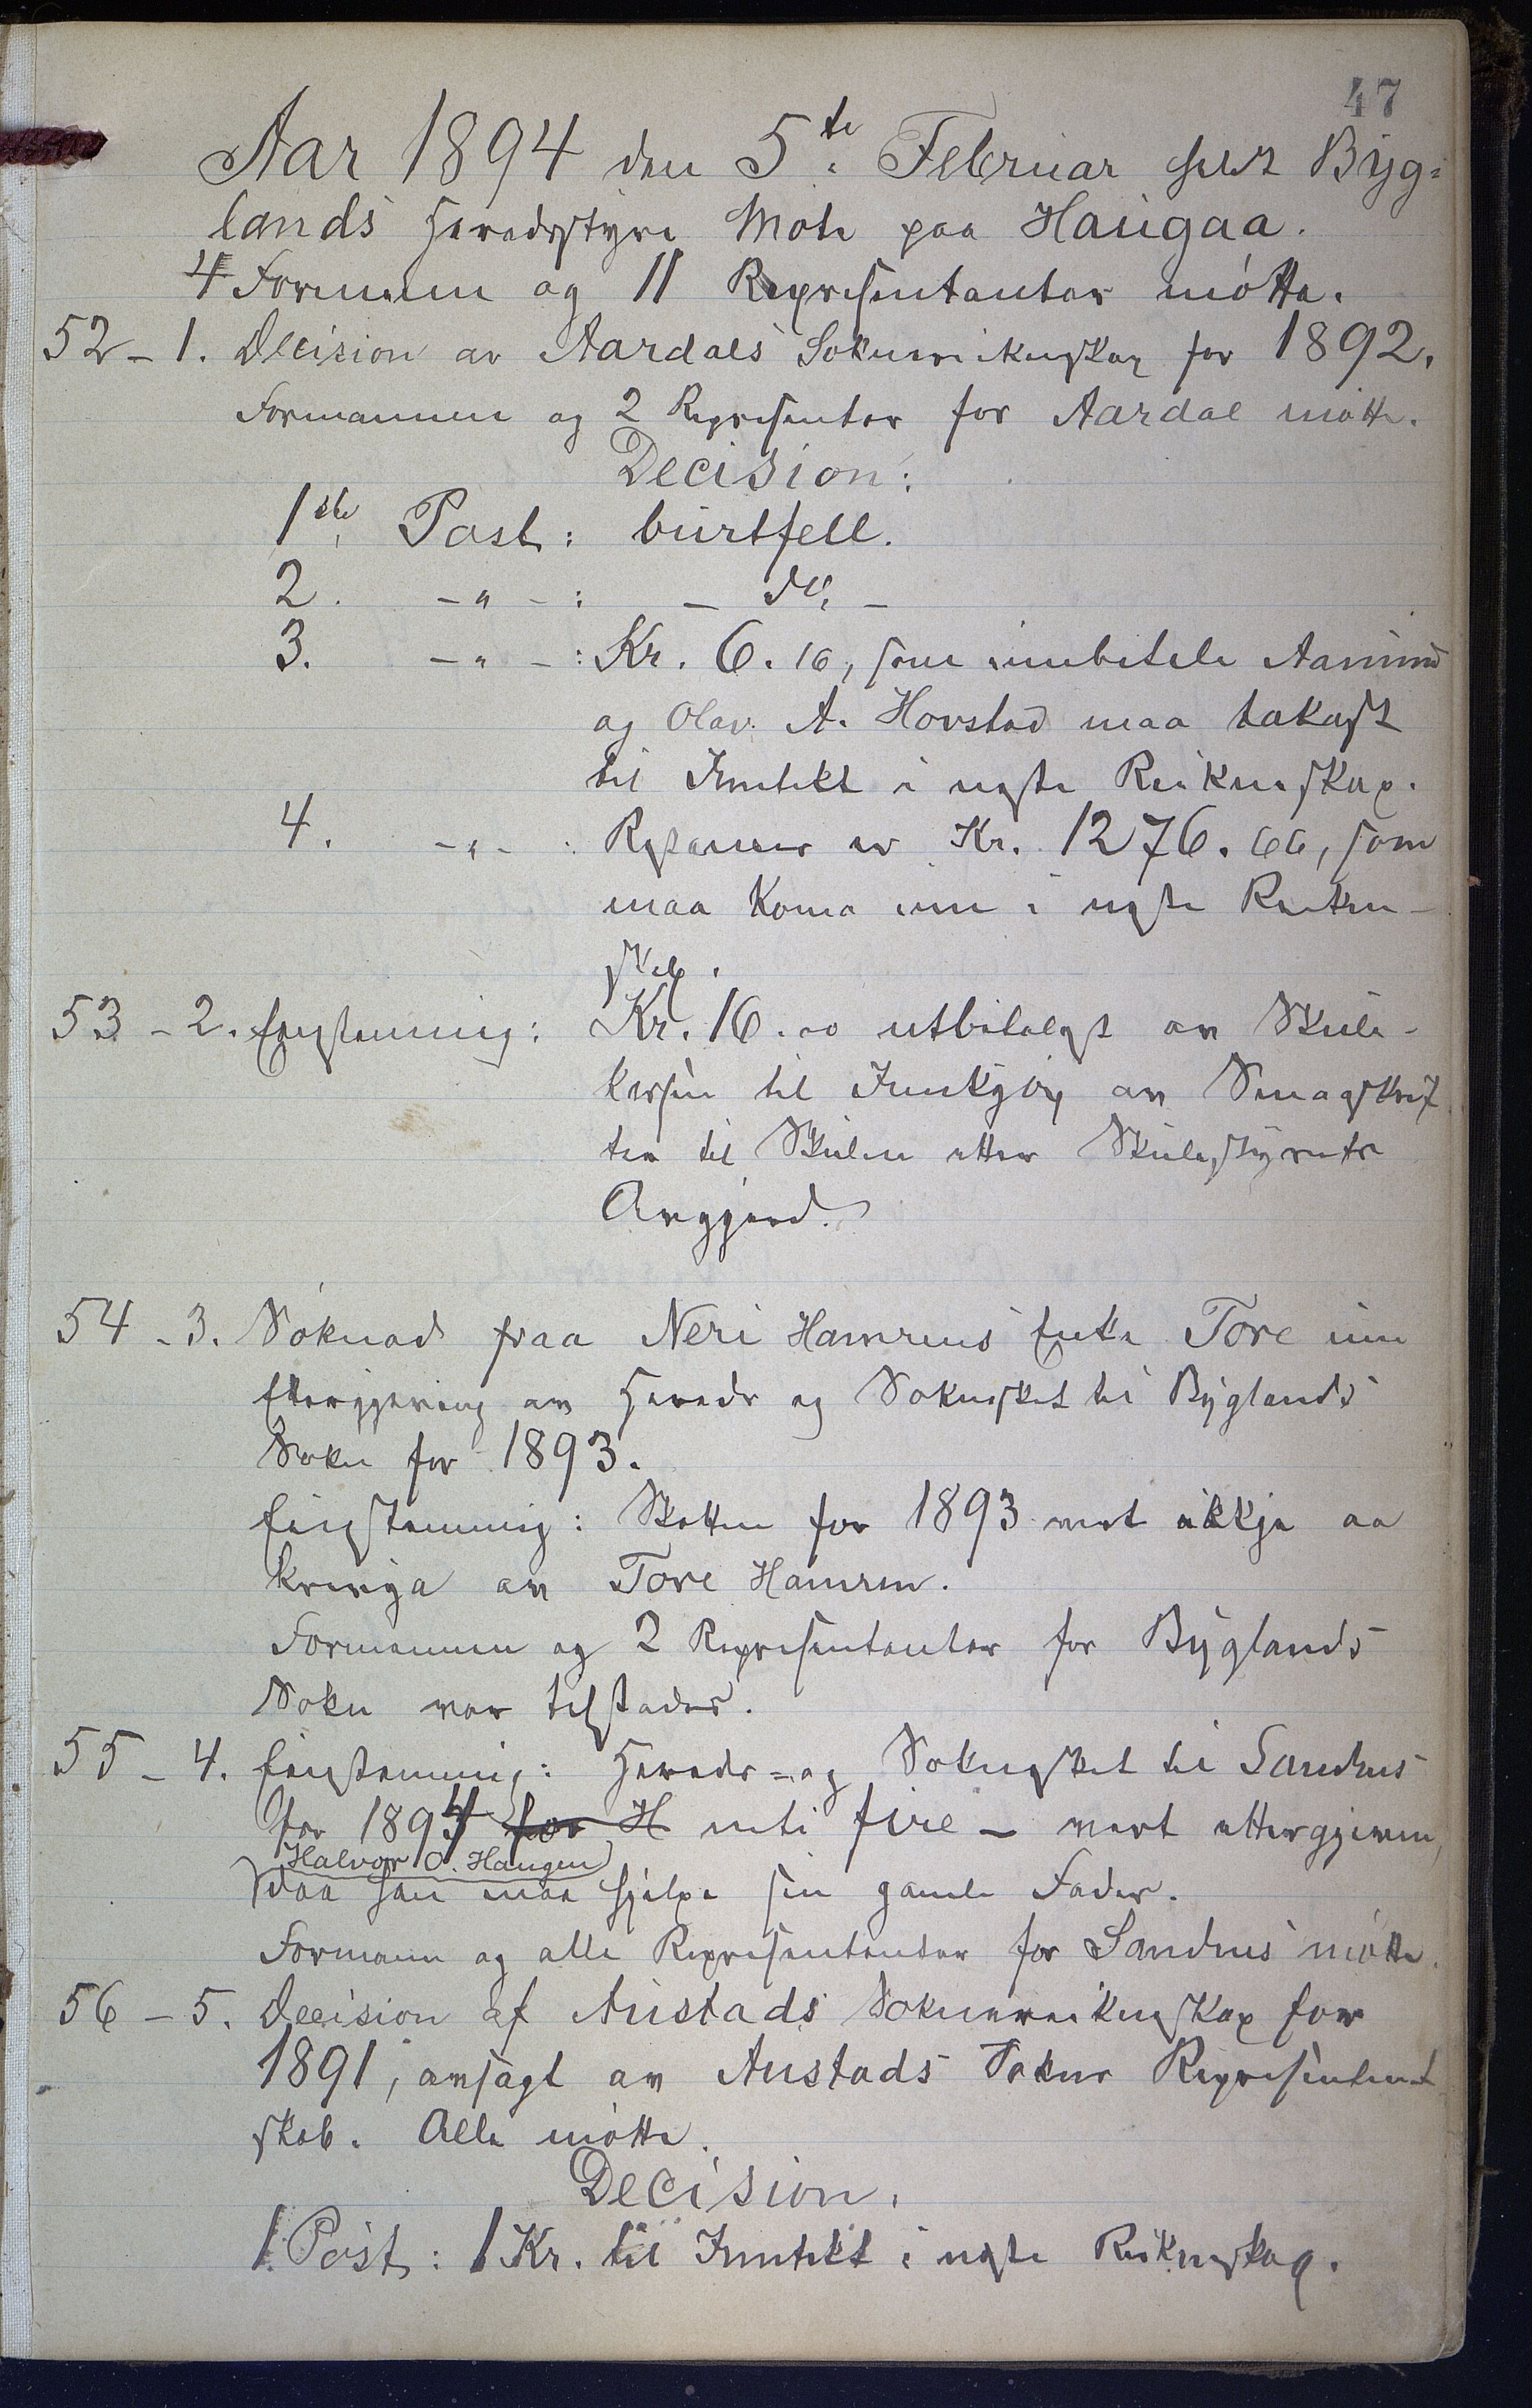 47
Aar 1894 den 5te Februar helt Byg-
lands Heradsstyre Møte paa Haugaa.
4 Formenn og 11 Representantar møtte.
52 - 1. Decision av Aardals Soknereikneskap for 1892.
Formannen og 2 Representar for Aardal møtte.
Decision:
1ste Post: burtfell.
2. -"-: - do, -
3. -"-: Kr. 6.16, som innbetale Aamund
og Olav A. Horstad maa takast
til Inntekt i næste Reikneskap.
4. -"-: Restanser er Kr. 1276.66, som
maa koma inn i næste Reikne-
skap.
53 - 2. Einstemmig: Kr. 16.00 utbetalast av Skule-
kassen til Innkjøp av Smaaskrif
ter til Skulen etter Skulestyrets
Avgjerd.
54 - 3. Søknad fraa Neri Hamrens Enke Tore um
Ettergjeving av Herads og Sokneskat til Byglands
Sokn for 1893.
Einstemmig: Skatten for 1893 vert ikkje aa
krevja av Tore Hamren.
Formannen og 2 Representantar for Byglands
Sokn var tilstades.
55 - 4. Einstemmig: Herads- og Sokneskat til Sandnes
for 1894 for H niti fire - vert ettergjeven,
Halvor O. Haugen
daa han maa hjelpa sin gamle Fader.
Formann og alle Representantar for Sandnes møtte.
56 - 5. Decision af Austads Soknereikneskap for
1891, avsagt av Austads Sokns Representant
skab. Alle møtte.
Decision.
1. Post: 1 Kr. til Inntekt i næste Reikneskap.